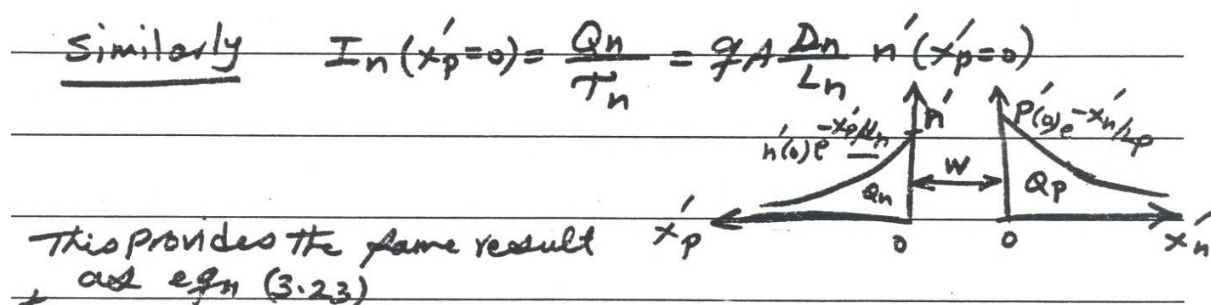 Similarly In(x'p=0) = Qn/Tn = qA Dn/Ln n'(x'p=0)
n' P'(0)e^-x'n/Lp
n'(0)e^-x'p/Ln
W
Qn Qp
x'p 0 0 x'n
This provides the same result
as eqn (3.23)